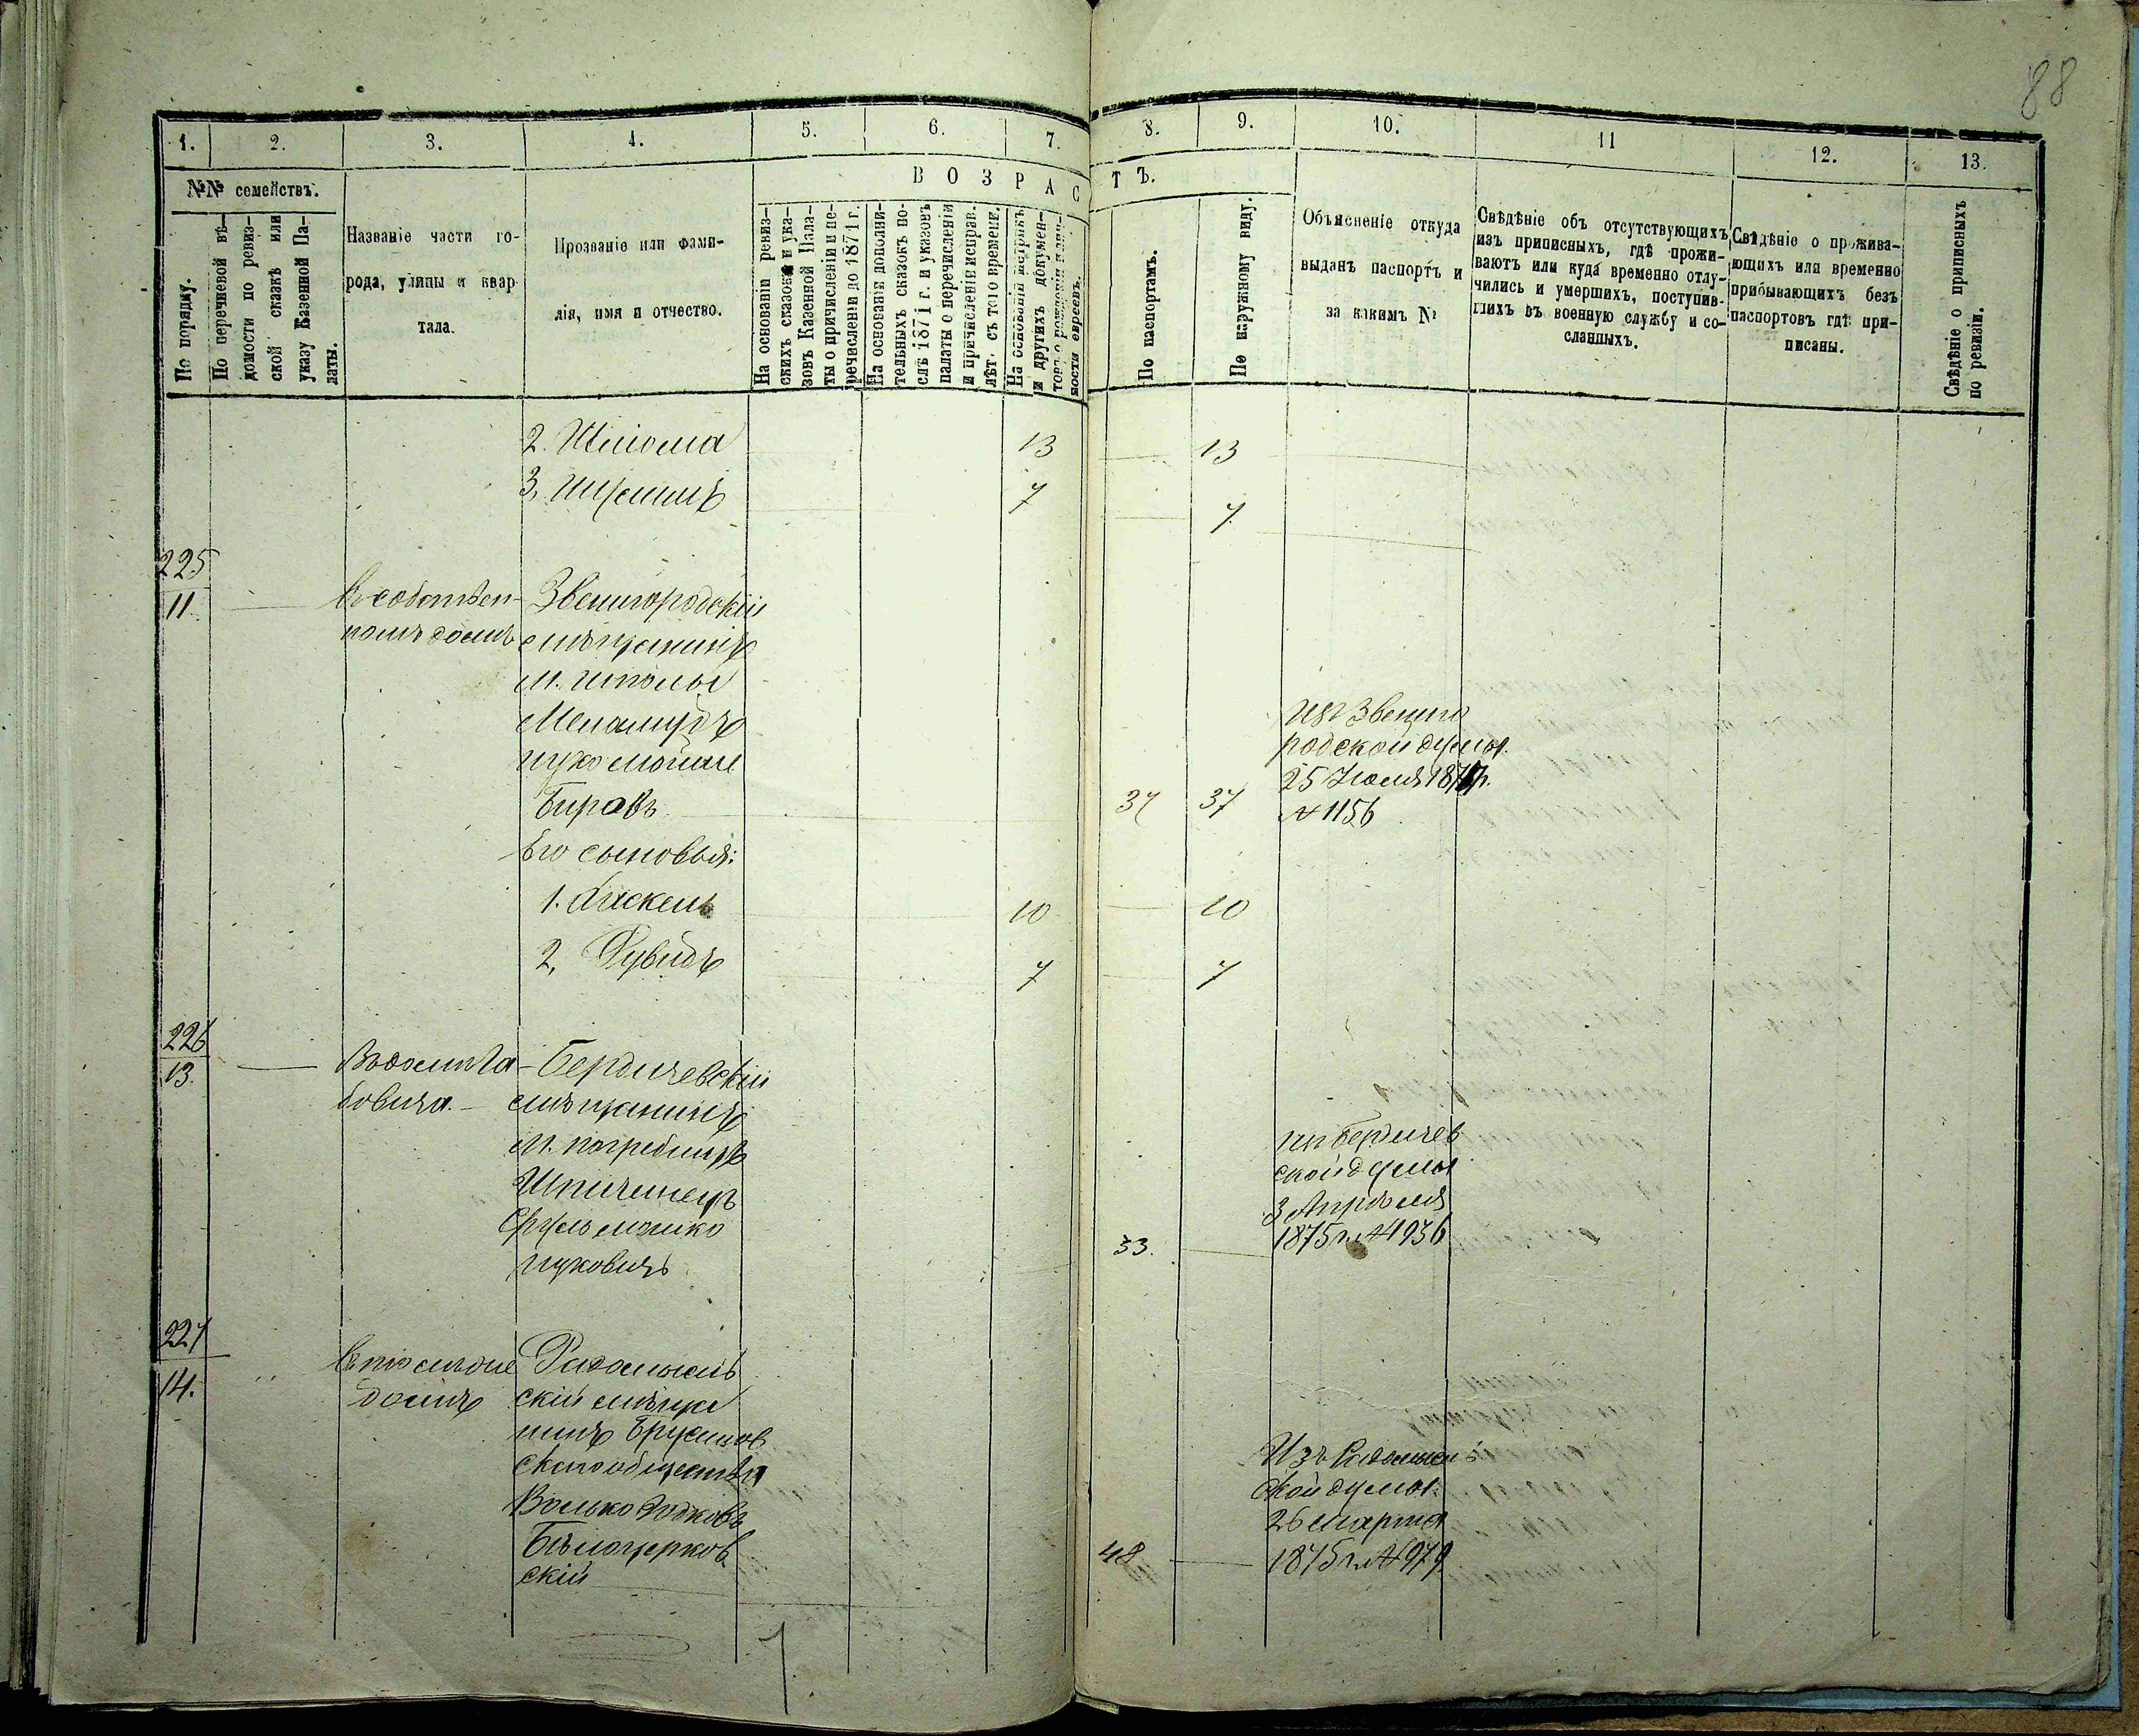 88
1. 2. 3. 4. 5. 6. 7. 8. 9. 10. 11 12. 13.
№№ семействъ.
В О З Р А С Т Ъ.
По порядку.
По перечневой вѣ-
домости по ревиз-
ской сказкѣ или
указу Казенной Па-
латы.
Названіе части го-
рода, улицы и квар
тала.
Прозваніе или фами-
лія, имя и отчество.
На основаніи ревиз-
скихъ сказокъ и ука-
зовъ Казенной Пала-
ты о причисленіи и пе-
речисленіи до 1871 г.
На основаніи дополни-
тельныхъ сказокъ по-
слѣ 1871 г. и указовъ
палаты о перечисленіи
и причисленіи исправ.
лѣт. съ того времени.
На основаніи метрикъ
и другихъ докумен-
товъ о рожденіи
ности евреевъ.
По паспортамъ.
По наружному виду.
Объясненіе откуда
выданъ паспортъ и
за какимъ №
Свѣдѣніе объ отсутствующихъ
изъ приписныхъ, гдѣ прожи-
ваютъ или куда временно отлу-
чились и умершихъ, поступив-
шихъ въ военную службу и со-
сланныхъ.
Свѣдѣніе о прожива-
ющихъ или временно
прибывающихъ безъ
паспортовъ гдѣ при-
писаны.
Свѣдѣніе о приписныхъ
по ревизіи.
2. Шлiома 13 13
3. 7 7
225
11.
Въ собствен-
номъ домѣ
Звенигородскій
мѣщанинъ
м. Шполы
Ицко
Его сыновья:
37 37
Изъ Звениго
родской думы
25 Іюля 187
№ 1156
1. 10 10
2. Дувидъ 7 7
226
13.
Въ домѣ
бовича.
Бердичевскій
мѣщанинъ
м. Погребищъ
Сруль Мошко
Ицковичъ
33.
Изъ Бердичев
ской думы
3 Апрѣля
1875 г. № 1936
227
14.
В томъ же
домѣ
Радомысль
скій мѣща
нинъ Брусилов
скаго общества
Волько
Бѣлоцерков
скій
48
Изъ Радомысль
ской думы
26 марта
1875 г. № 979